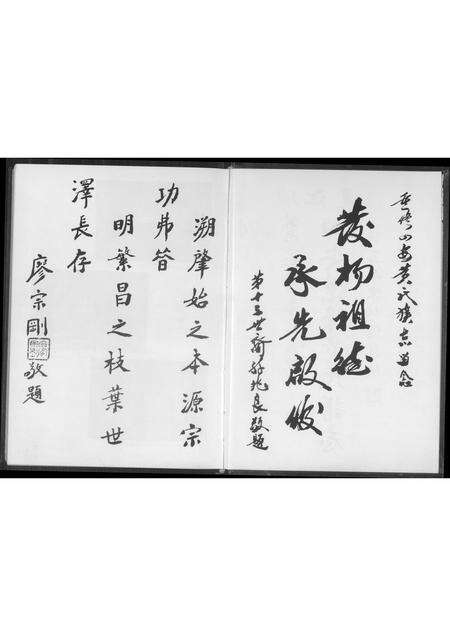 黄氏族志
發揚祖德
承先啟後
第十三世裔孫兆良敬題
溯肇始之本源宗
功弗替
明繁昌之枝葉世
澤長存
廖宗剛敬題